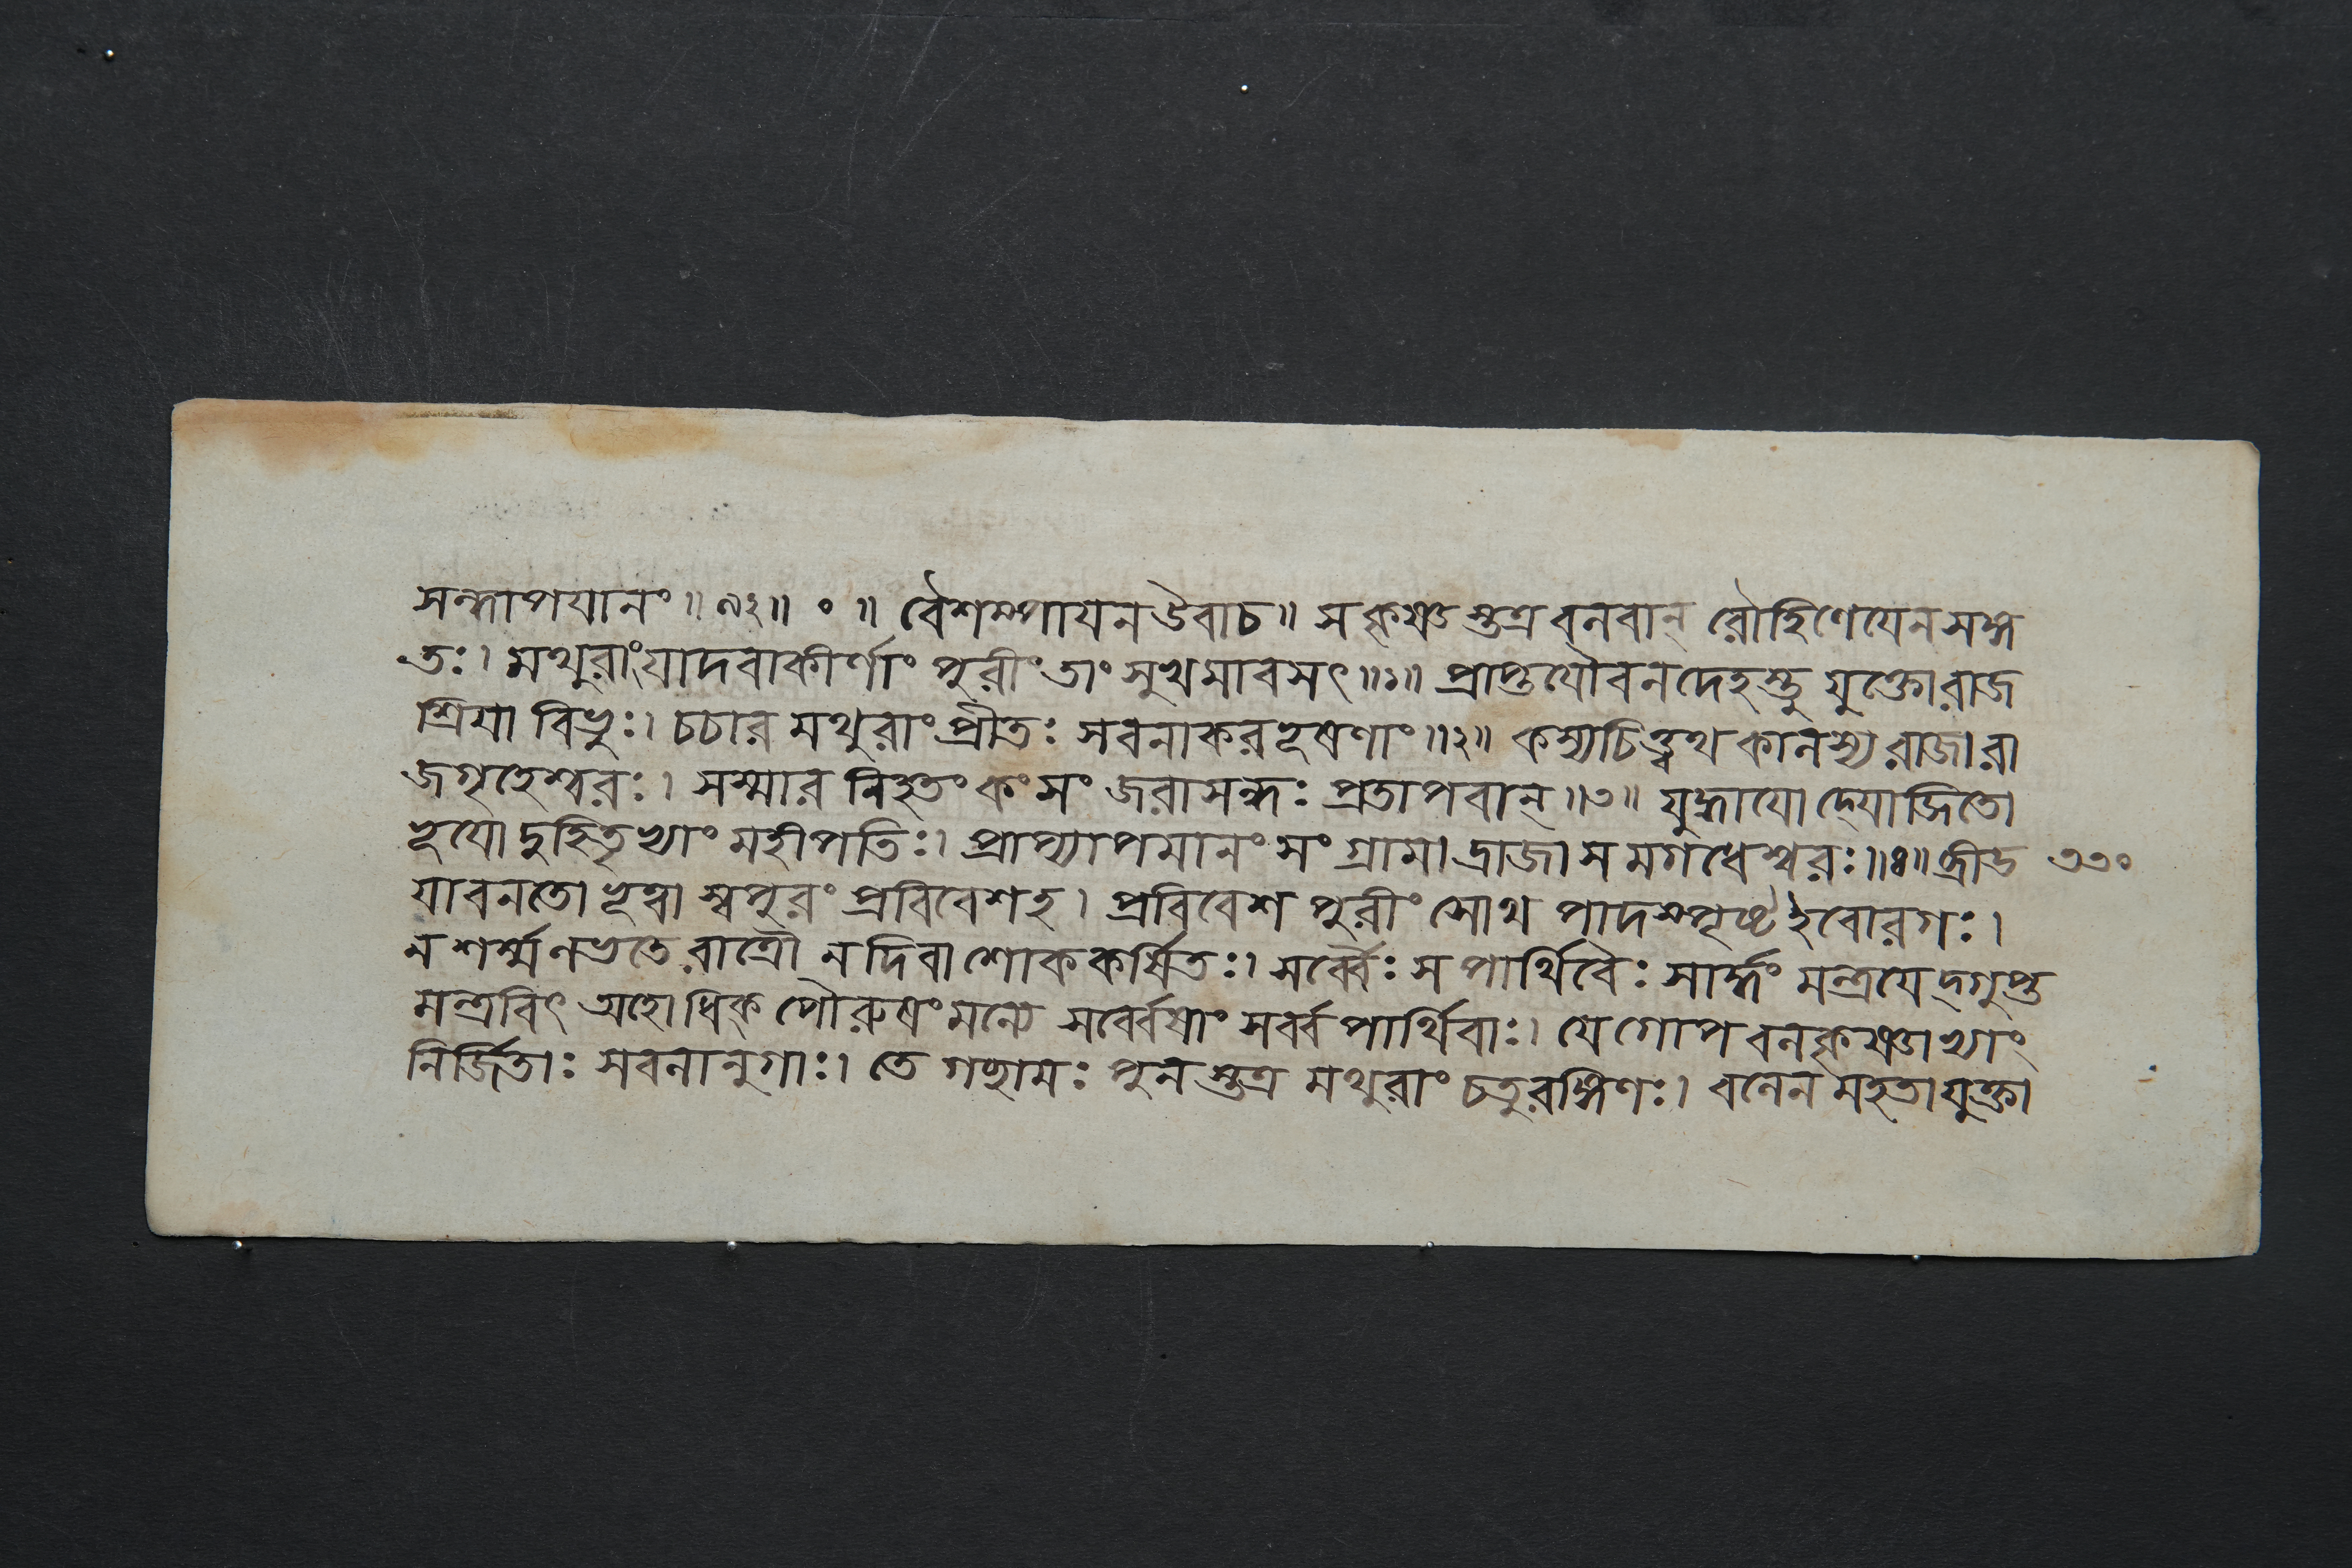 সন্ধাপযানং ॥ ৯২ ॥ ০ ॥ বৈশম্পাযন উবাচ ॥ স কৃষ্ণস্তত্র বলবান্ রৌহিণেযেন সঙ্গ
তঃ । মথুরাং যাদবাকীর্ণাং পুরীং তাং সুখমাবসৎ ॥ ১ ॥ প্রাপ্তযৌবনদেহস্তু যুক্তো রাজ
শ্রিযা বিভুঃ । চচার মথুরাং প্রীতঃ সবনাকরভূষণাং ॥ ২ ॥ কস্যচিত্ত্বথ কালস্য রাজা রা
জগৃহেশ্বরঃ । সস্মার নিহতং কংসং জরাসন্ধঃ প্রতাপবান্ ॥ ৩ ॥ যুদ্ধাযোদ্যোজিতো
ভূযো দুহিতৃভ্যাং মহীপতিঃ । প্রাপ্যাপমানং সংগ্রামাদ্রাজা স মগধেশ্বরঃ ॥ ৪ ॥ ব্রীড ৩৩০
যাবনতো ভূত্বা স্বপুরং প্রবিবেশ হ । প্রবিবেশ পুরীং সোথ পাদস্পৃষ্ট ইবোরগঃ ।
ন শর্ম্ম লভতে রাত্রৌ ন দিবা শোককর্ষিতঃ । সর্ব্বৈঃ স পার্থিবৈঃ সার্দ্ধং মন্ত্রযেদ্ গুপ্ত
মন্ত্রবিৎ অহো ধিক্ পৌরুষং মন্যে সর্ব্বেষাং সর্ব্বপার্থিবাঃ । যে গোপ বলকৃষ্ণাভ্যাং
নির্জিতাঃ সবলানুগাঃ । তে গচ্ছামঃ পুনস্তত্র মথুরাং চতুরঙ্গিণঃ । বলেন মহতা যুক্তা